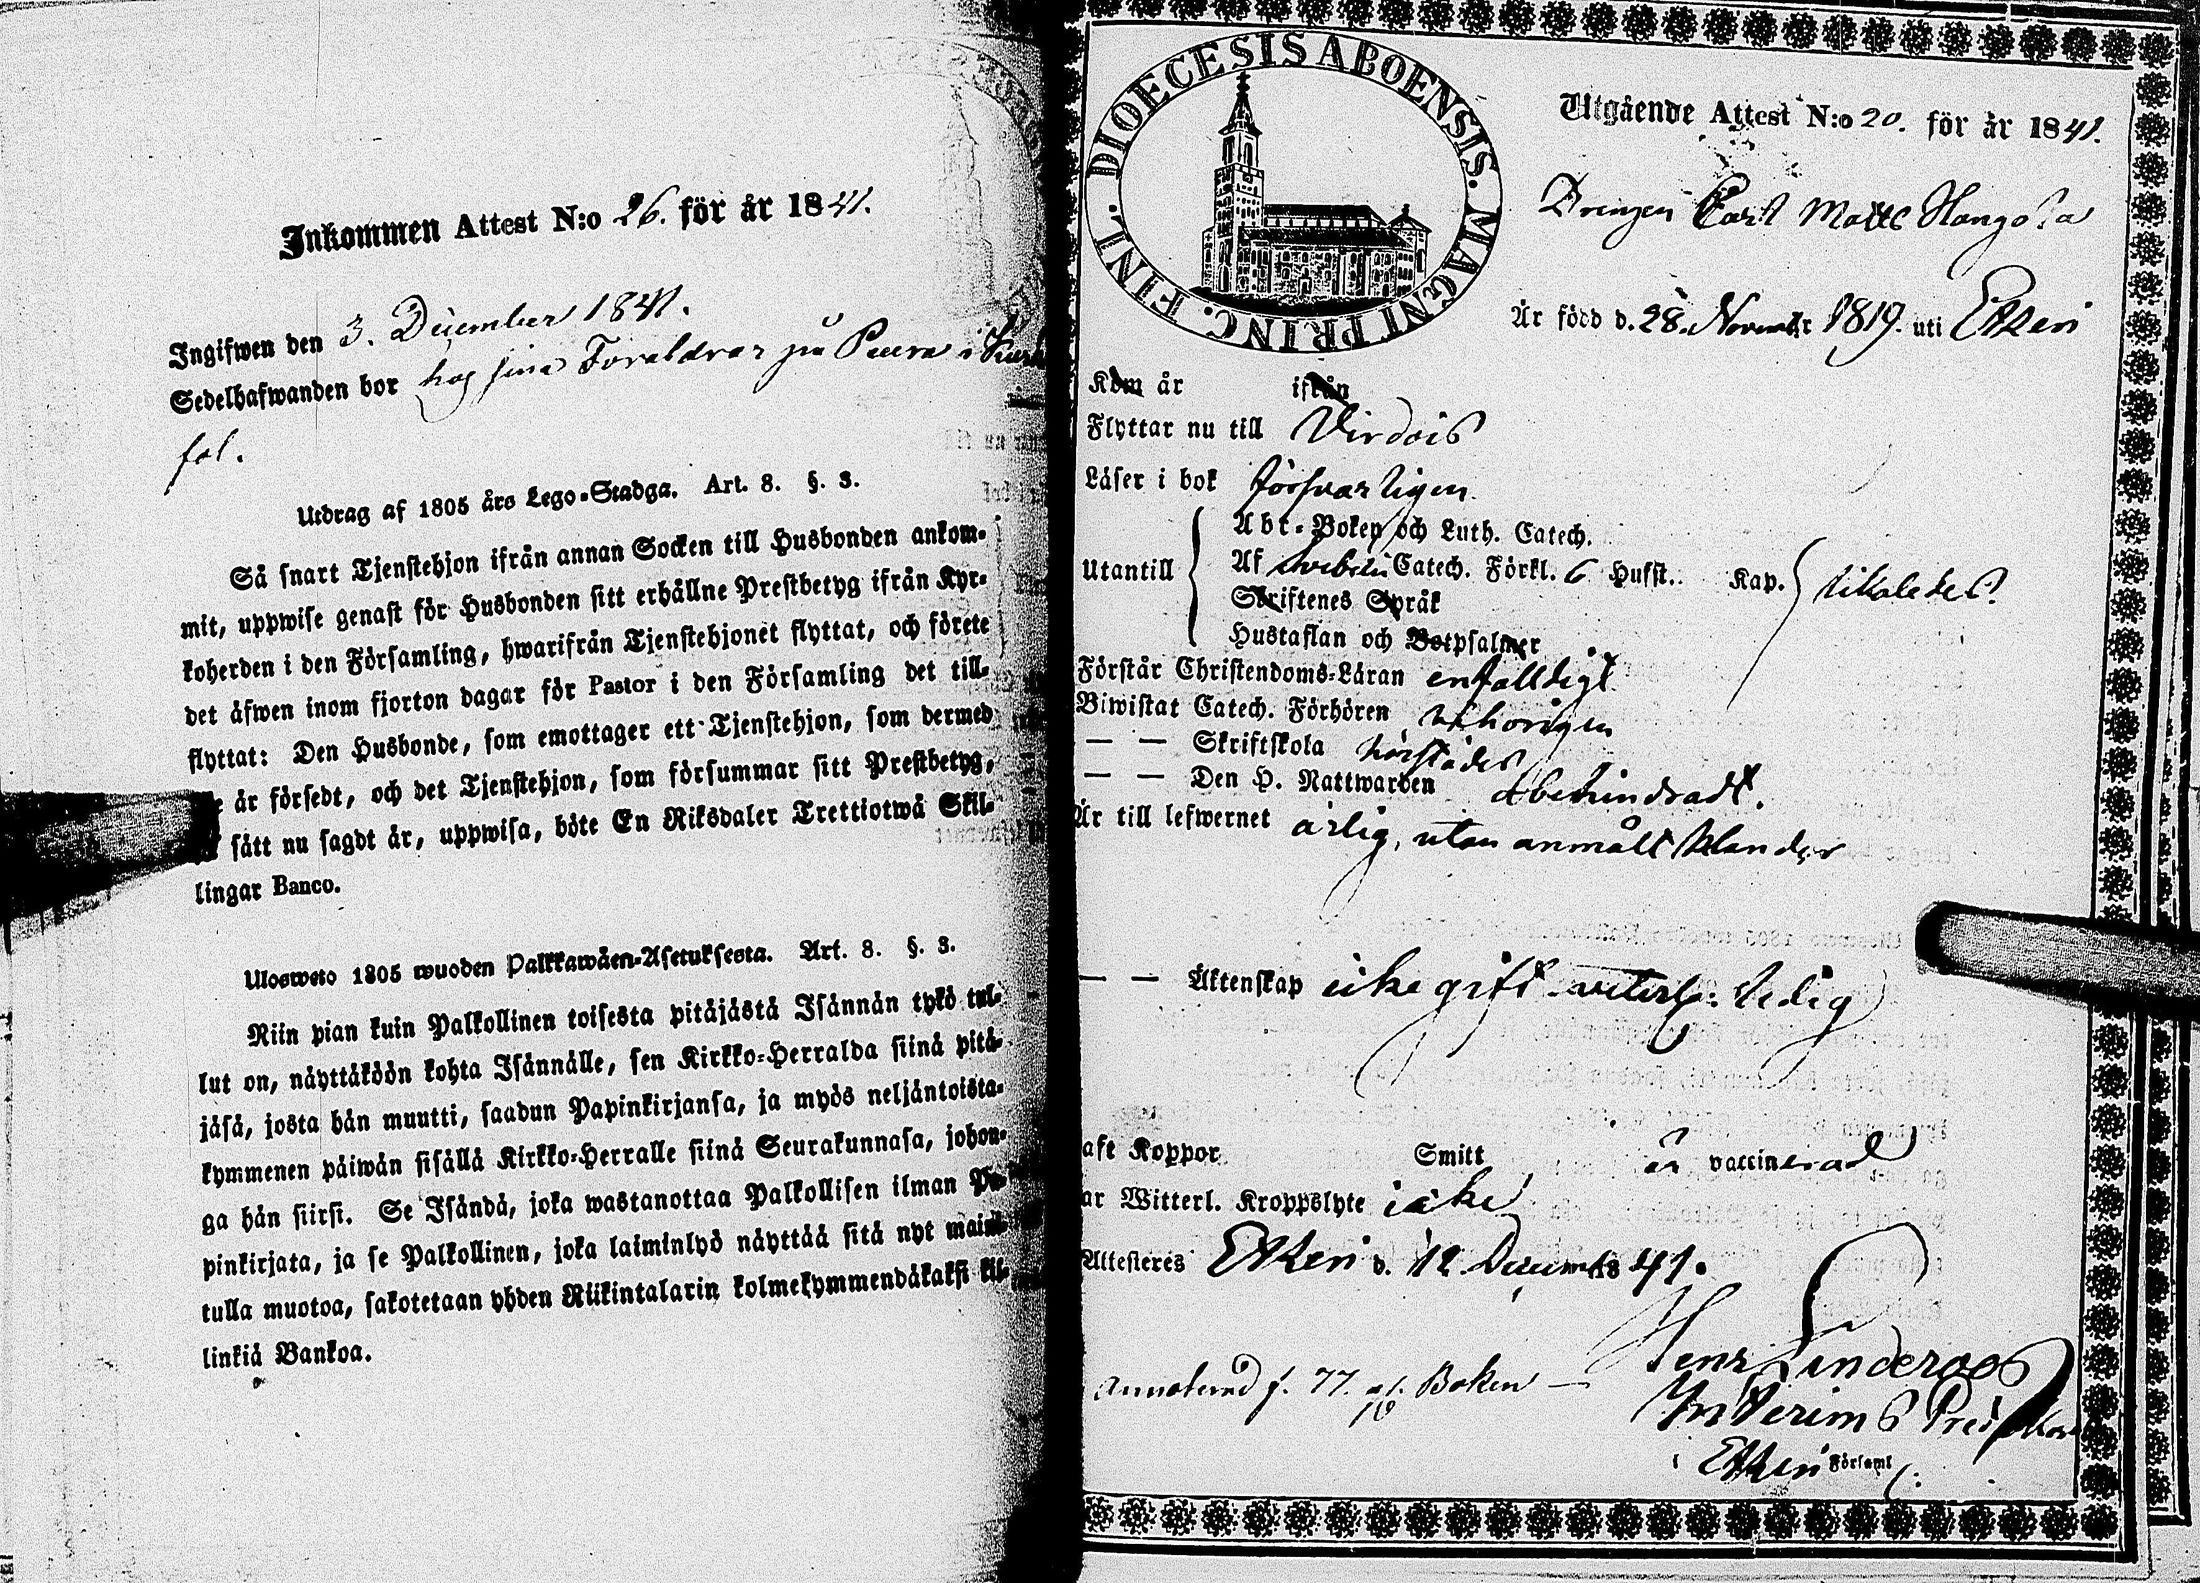 Inkommen Attest N:o 26. för år 1841.
Ingifwen den 3. December 1841.
Sedelhafwanden bor hos sina Föräldrar på Puura i
fol.
Utdrag af 1805 års Lego-Stadga. Art. 8. §. 3.
Så snart Tjenstehjon ifrån annan Socken till Husbonden ankom-
mit, uppwise genast för Husbonden sitt erhållne Prestbetyg ifrån Kyr-
koherden i den Församling, hwarifrån Tjenstehjonet flyttat, och förete
det äfwen inom fjorton dagar för Pastor i den Församling det till-
flyttat: Den Husbonde, som emottager ett Tjenstehjon, som dermed
är försedt, och det Tjenstehjon, som försummar sitt Prestbetyg,
sätt nu sagdt är, uppwisa, böte En Riksdaler Trettiotwå Skil-
lingar Banco.
Ulosweto 1805 wuoden Palkkawäen-Asetuksesta. Art. 8. §. 3.
Niin pian kuin Palkollinen toisesta pitäjästä Isännän tykö tul-
lut on, näyttäköön kohta Isännälle, sen Kirkko-Herralda siinä pitä-
jäsä, josta hän muutti, saadun Papinkirjansa, ja myös neljäntoista-
kymmenen päiwän sisällä Kirkko-Herralle siinä Seurakunnasa, johon-
ga hän siirsi. Se Isändä, joka wastanottaa Palkollisen ilman Pa-
pinkirjata, ja se Palkollinen, joka laiminlyö näyttää sitä nyt mainit-
tulla muotoa, sakotetaan yhden Riikintalarin kolmekymmendäkaksi kil-
linkiä Bankoa.
DIOECESIS ABOENSIS. MAGNI PRINC. FINL.
Utgående Attest N:o 20. för år 1841.
Drengen Carl Matts Hangola
Är född d. 28. November 1819. uti Etseri
Kom år ifrån
Flyttar nu till Virdois
Läser i bok försvarligen
Utantill
Abc-Boken och Luth. Catech.
Af Svebelii Catech. Förkl. 6 Hufst. Kap.
Skriftenes Språk
Hustaflan och Botpsalmer
Förstår Christendoms-Läran enfalldigt
Biwistat Catech. Förhören
— — Skriftskola härstädes
— — Den H. Nattwarden obehindradt.
Är till lefwernet ärlig, utan anmält klander
— — Äktenskap icke gift witterl: ledig
aft Koppor Smitt är vaccinerad
ar Witterl. Kroppslyte icke
Attesteres Etseri d. 12 Decemb. 1841.
Annoterad f. 77. af Boken —
Henr Linderoos
Interims Predikant
i Etseri Församl.